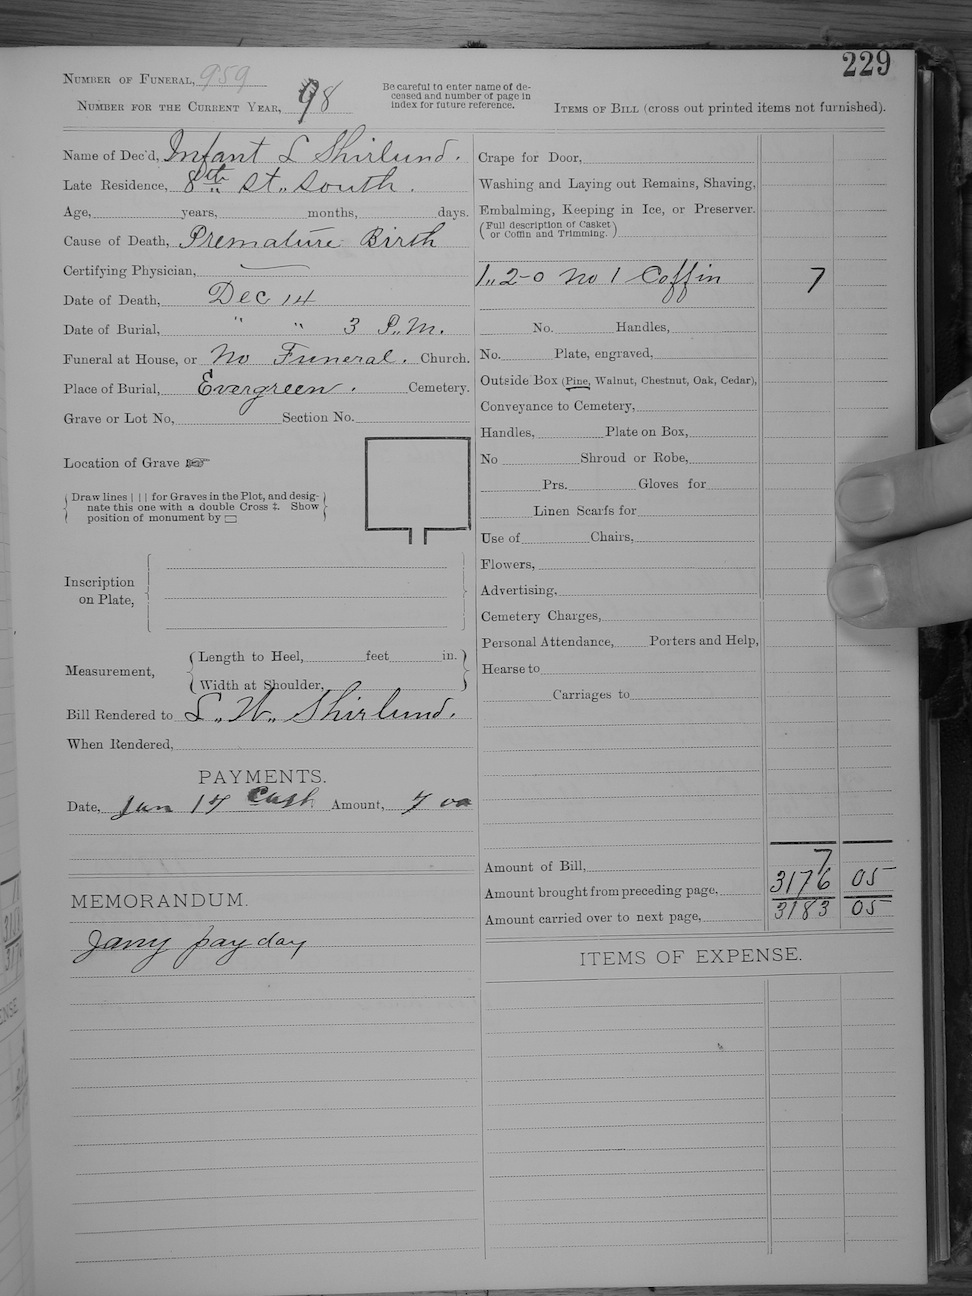 229
Number of Funeral, 959
Number for the Current Year, 98
Be careful to enter name of de-
ceased and number of page in
index for future reference.
Items of Bill (cross out printed items not furnished).
Name of Dec'd, Infant L Shirlund.
Late Residence, 8th St., South.
Age, years, months, days.
Cause of Death, Premature Birth
Certifying Physician,
Date of Death, Dec 14
Date of Burial, " " 3 P.M.
Funeral at House, or No Funeral. Church.
Place of Burial, Evergreen. Cemetery.
Grave or Lot No, Section No.
Location of Grave ☞
Draw lines | | | for Graves in the Plot, and desig-
nate this one with a double Cross ‡. Show
position of monument by ▭
Inscription
on Plate,
Measurement,
Length to Heel, feet in.
Width at Shoulder,
Bill Rendered to L., W., Shirlund.
When Rendered,
PAYMENTS.
Date, Jan 17 Cash Amount, 7 00
MEMORANDUM.
Jany pay day
Crape for Door,
Washing and Laying out Remains, Shaving,
Embalming, Keeping in Ice, or Preserver.
(Full description of Casket
or Coffin and Trimming.)
1,, 2-0 No 1 Coffin 7
No. Handles,
No. Plate, engraved,
Outside Box (Pine, Walnut, Chestnut, Oak, Cedar),
Conveyance to Cemetery,
Handles, Plate on Box,
No Shroud or Robe,
Prs. Gloves for
Linen Scarfs for
Use of Chairs,
Flowers,
Advertising,
Cemetery Charges,
Personal Attendance, Porters and Help,
Hearse to
Carriages to
Amount of Bill, 7
Amount brought from preceding page, 3176 05
Amount carried over to next page, 3183 05
ITEMS OF EXPENSE.